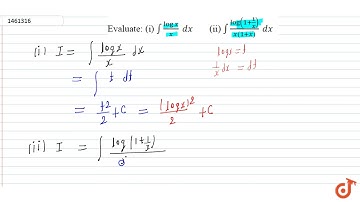 1461316
Evaluate: (i) ∫ log x / x dx (ii) ∫ log(1+1/x) / x(1+x) dx
(i) I = ∫ log x / x dx
log x = t
1/x dx = dt
= ∫ t dt
= t2/2 + C = (log x)2 / 2 + C
(ii) I = ∫ log(1+1/x)